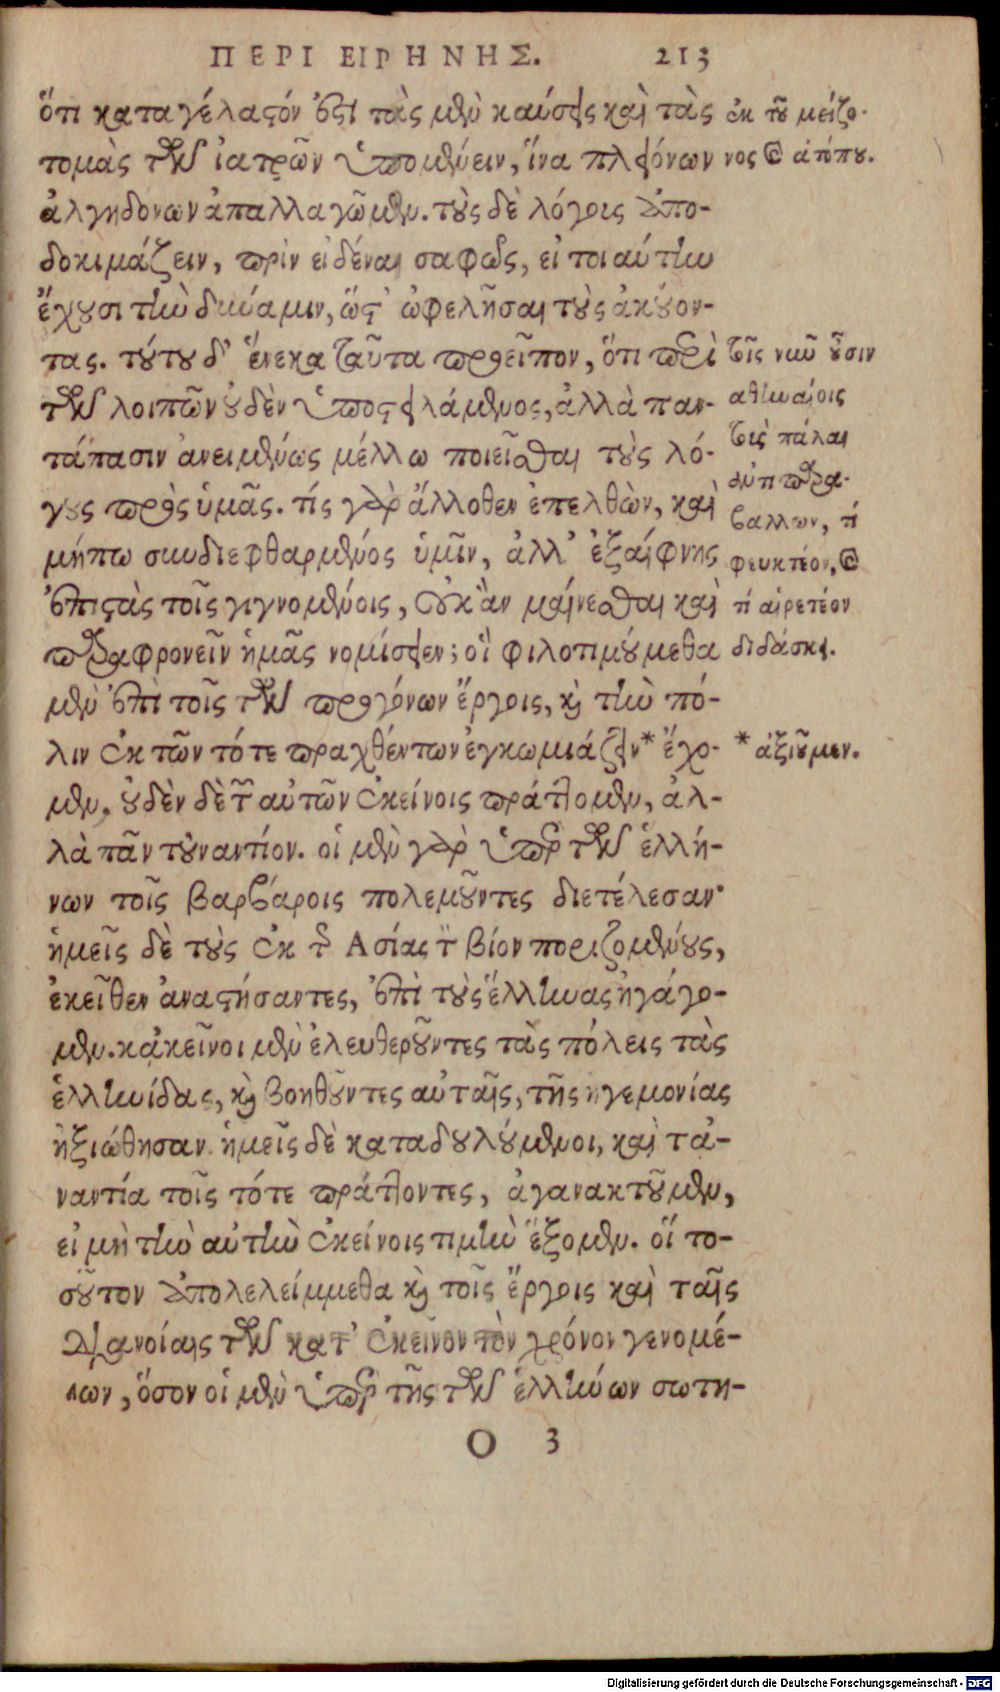 ΠΕΡΙ ΕΙΡΗΝΗΣ. 213
ὅτι καταγέλαστόν ἐστι τὰς μὲν καύσεις καὶ τὰς
τομὰς τῶν ἰατρῶν ὑπομένειν, ἵνα πλειόνων
ἀλγηδόνων ἀπαλλαγῶμεν. τοὺς δὲ λόγοις ἀπο-
δοκιμάζειν, πρὶν εἰδέναι σαφῶς, εἰ τοιαύτην
ἔχουσι τὴν δύναμιν, ὥστ' ὠφελῆσαι τοὺς ἀκούον-
τας. τούτου δ' ἕνεκα ταῦτα προεῖπον, ὅτι περὶ
τῶν λοιπῶν οὐδὲν ὑποστειλάμενος, ἀλλὰ παν-
τάπασιν ἀνειμένως μέλλω ποιεῖσθαι τοὺς λό-
γους πρὸς ὑμᾶς. τίς γὰρ ἄλλοθεν ἐπελθὼν, καὶ
μήπω συνδιεφθαρμένος ὑμῖν, ἀλλ' ἐξαίφνης
ἐπιστὰς τοῖς γιγνομένοις, οὐκ ἂν μαίνεσθαι καὶ
παραφρονεῖν ἡμᾶς νομίσειεν; οἳ φιλοτιμούμεθα
μὲν ἐπὶ τοῖς τῶν προγόνων ἔργοις, καὶ τὴν πό-
λιν ἐκ τῶν τότε πραχθέντων ἐγκωμιάζειν* ἔχο-
μεν, οὐδὲν δὲ τῶν αὐτῶν ἐκείνοις πράττομεν, ἀλ-
λὰ πᾶν τοὐναντίον. οἱ μὲν γὰρ ὑπὲρ τῶν ἑλλή-
νων τοῖς βαρβάροις πολεμοῦντες διετέλεσαν·
ἡμεῖς δὲ τοὺς ἐκ τῆς Ασίας τὸν βίον ποριζομένους,
ἐκεῖθεν ἀναστήσαντες, ἐπὶ τοὺς ἕλληνας ἠγάγο-
μεν. κἀκεῖνοι μὲν ἐλευθεροῦντες τὰς πόλεις τὰς
ἑλληνίδας, καὶ βοηθοῦντες αὐταῖς, τῆς ἡγεμονίας
ἠξιώθησαν. ἡμεῖς δὲ καταδουλούμενοι, καὶ τἀ-
ναντία τοῖς τότε πράττοντες, ἀγανακτοῦμεν,
εἰ μὴ τὴν αὐτὴν ἐκείνοις τιμὴν ἕξομεν. οἳ το-
σοῦτον ἀπολελείμμεθα καὶ τοῖς ἔργοις καὶ ταῖς
διανοίαις τῶν κατ' ἐκεῖνον τὸν χρόνον γενομέ-
νων, ὅσον οἱ μὲν ὑπὲρ τῆς τῶν ἑλλήνων σωτη-
O 3
ἐκ τοῦ μείζο-
νος καὶ ἀπὸ
τοῖς νῦν οὖσιν
ἀθηναίοις
τοὺς πάλαι
ἀντιπαρα-
βάλλων, τί
φευκτέον, καὶ
τί αἱρετέον
διδάσκει.
* ἀξιοῦμεν.
Digitalisierung gefördert durch die Deutsche Forschungsgemeinschaft - DFG